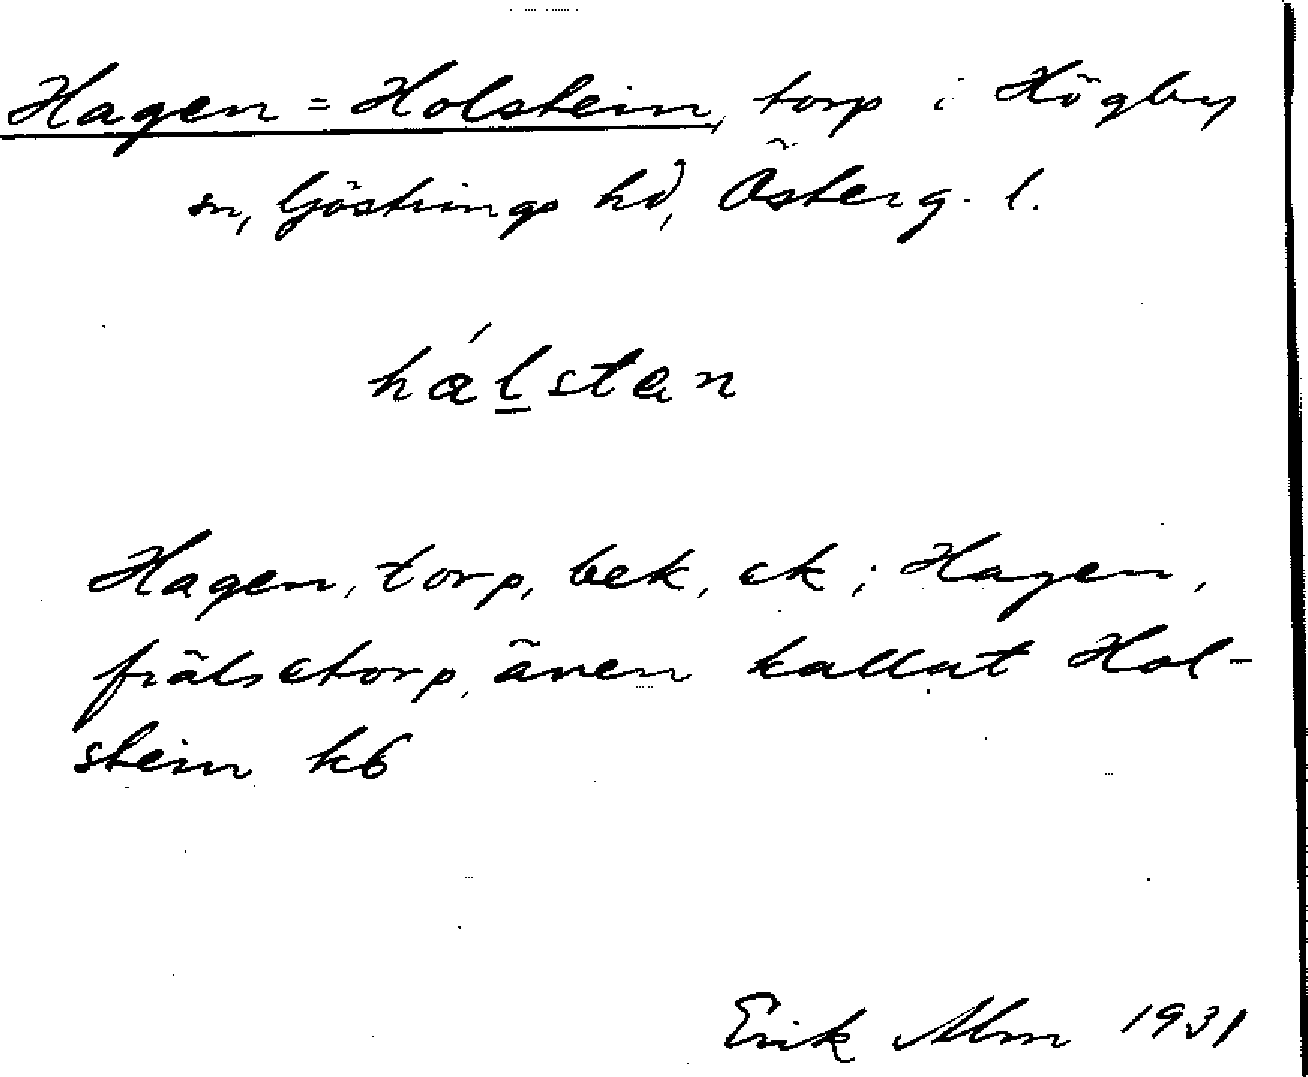 Hagen = Holstein, torp i Högby
sn, Göstrings hd, Österg. l.
hålstan
Hagen, torp, bek, ek; Hagen,
frälsetorp, även kallat Hol-
stein kb
Erik Alm 1931